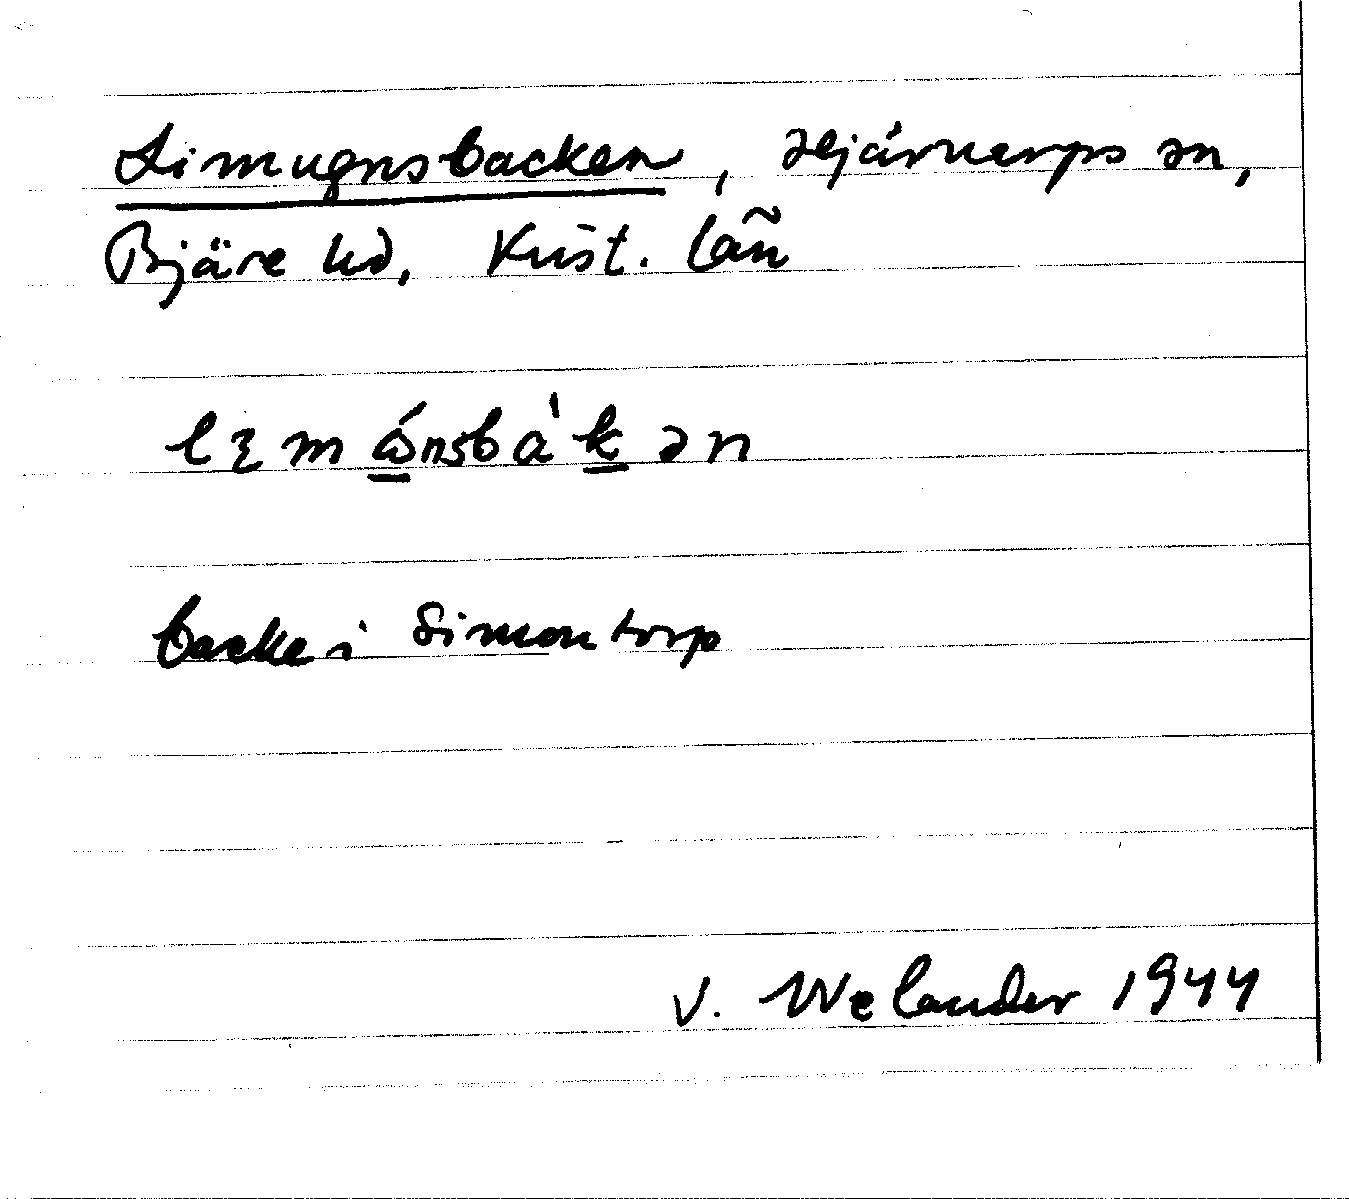 Limugnsbacken, Hjärnarps sn,
Bjäre hd, Krist. län
lɪmώnsbàkən
backe i Simontorp
V. Welander 1944